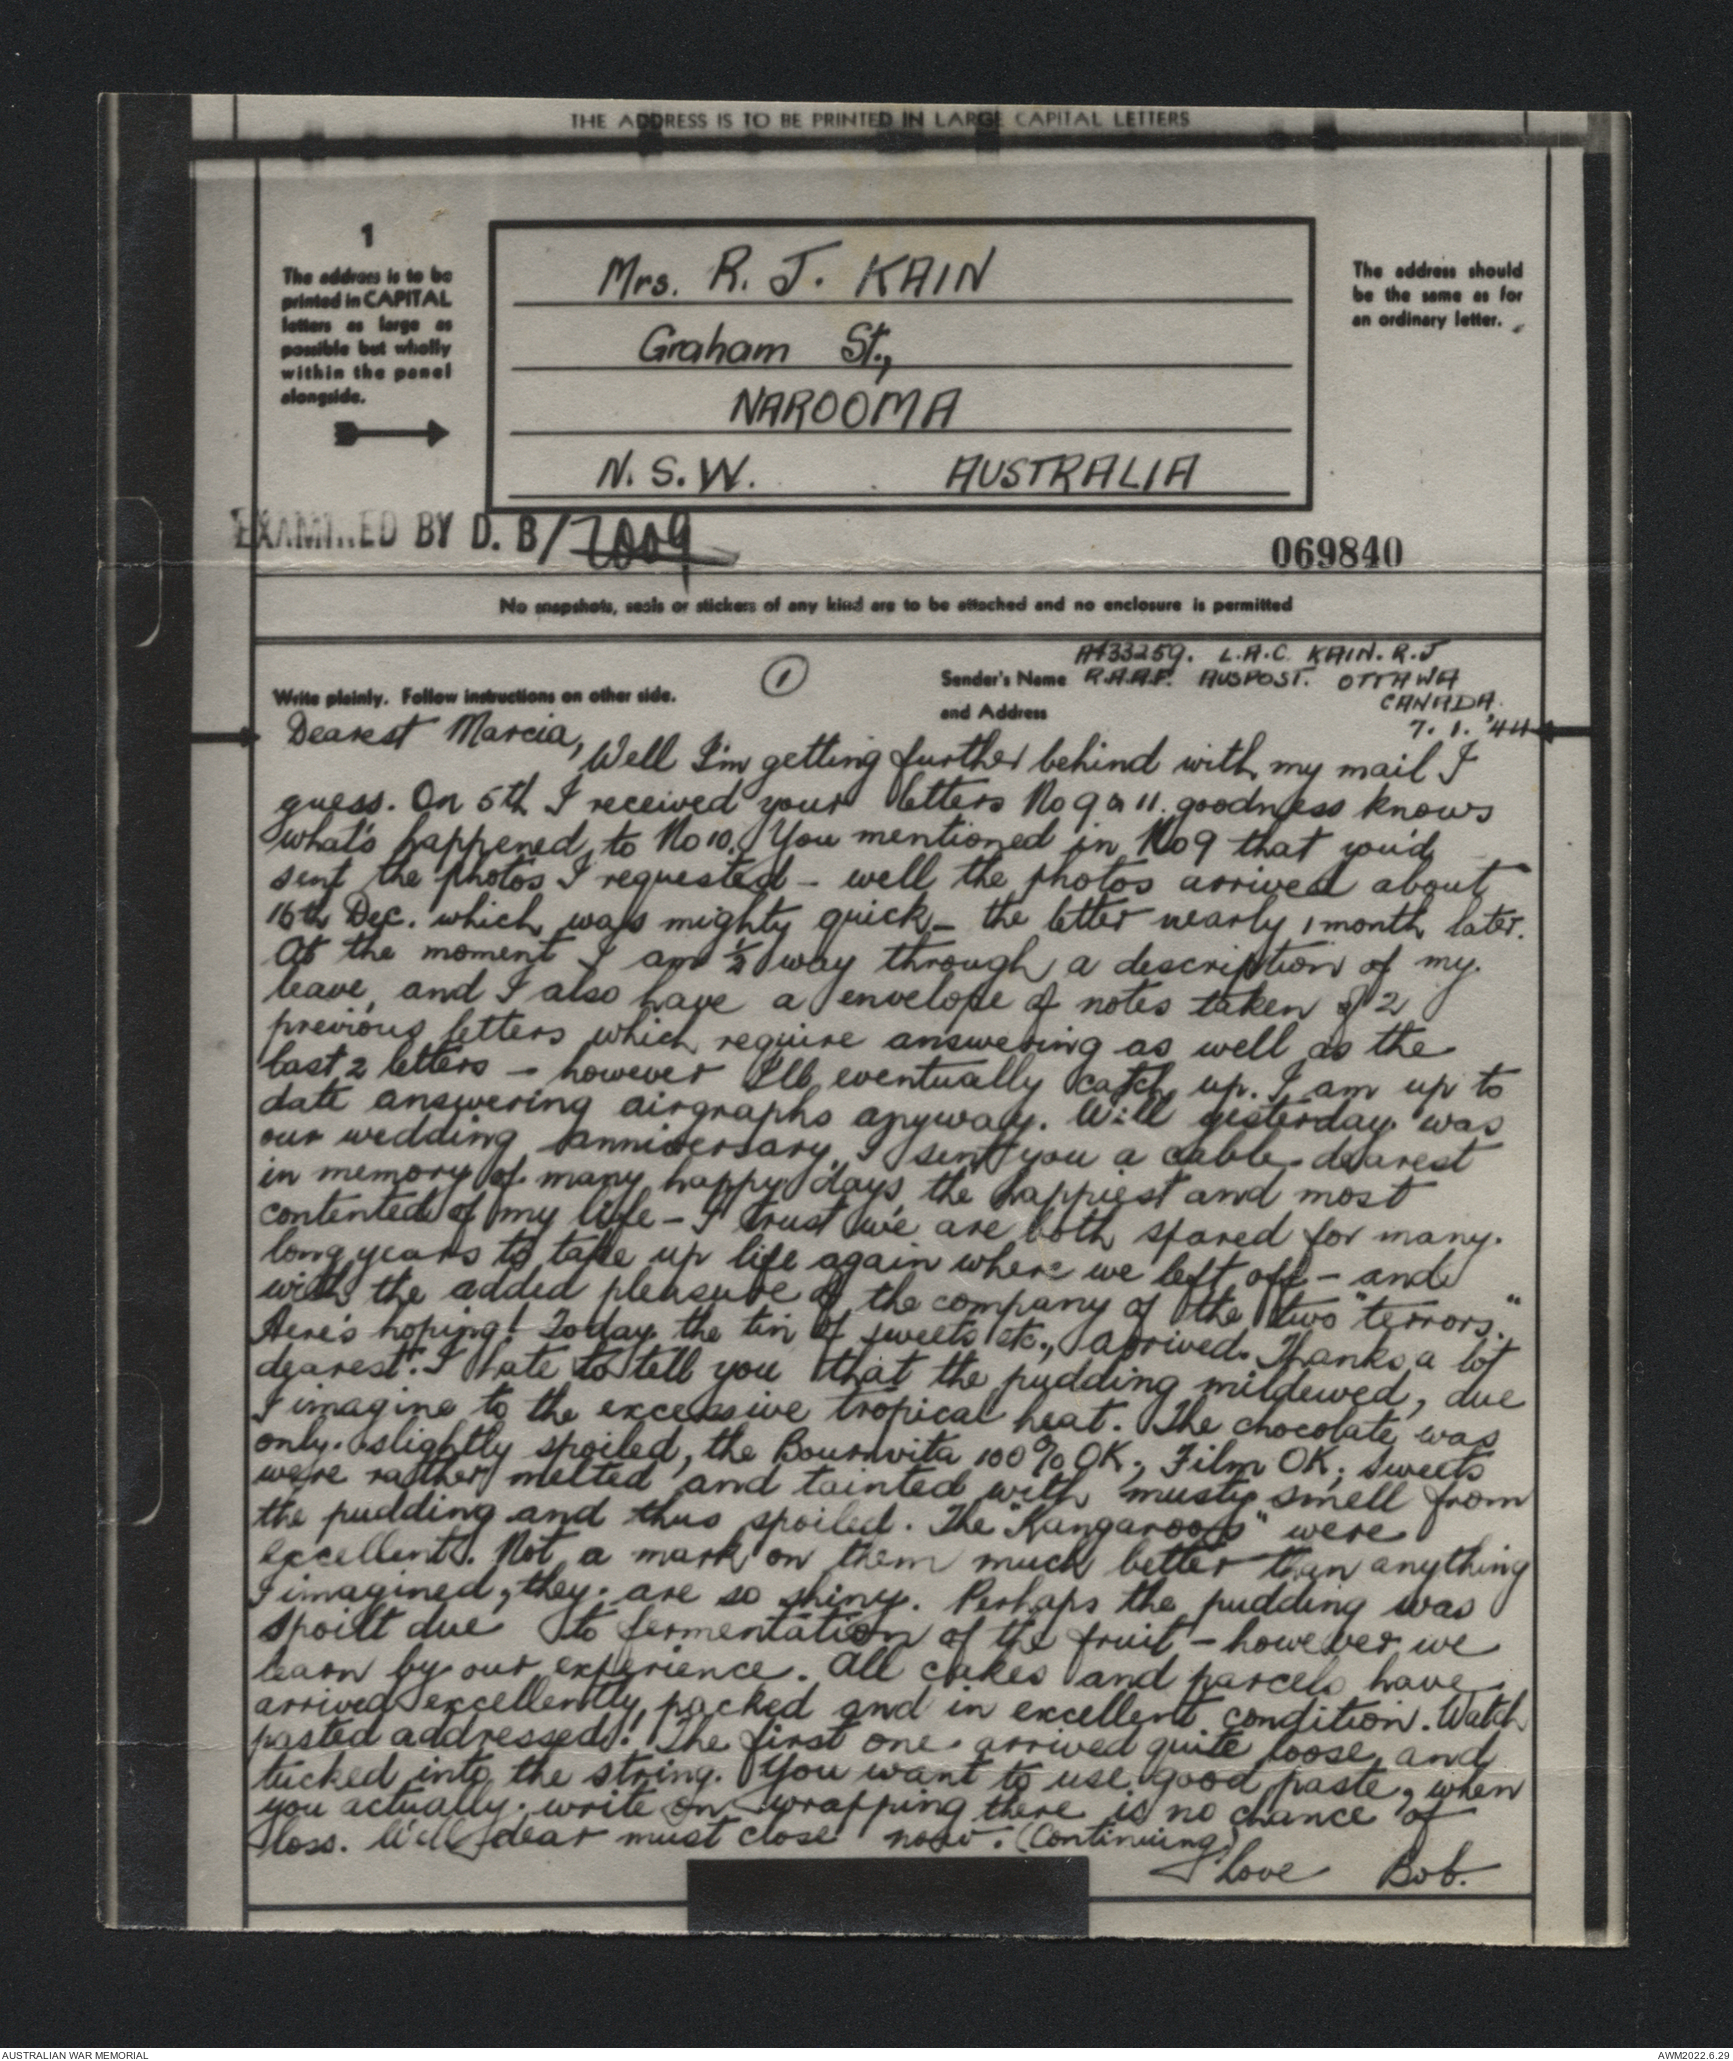 THE ADDRESS IS TO BE PRINTED IN LARGE CAPITAL LETTERS
1
The address is to be
printed in CAPITAL
letters as large as
possible but wholly
within the panel
alongside.
Mrs. R. J. KAIN
Graham St.,
NAROOMA
N.S.W. AUSTRALIA
The address should
be the same as for
an ordinary letter.
EXAMINED BY D. B/7009
069840
No snapshots, seals or stickers of any kind are to be attached and no enclosure is permitted
Write plainly. Follow instructions on other side.
1
Sender's Name
and Address
A433259. L.A.C. KAIN. R.J
R.A.A.F. AUSPOST. OTTAWA
CANADA.
7. 1. '44
Dearest Marcia,
Well I'm getting further behind with my mail I
guess. On 5th I received your letters No 9 & 11. goodness knows
what's happened to No 10. You mentioned in No 9 that you'd
sent the photos I requested - well the photos arrived about
16th Dec. which was mighty quick - the letter nearly 1 month later.
At the moment I am ½ way through a description of my
leave, and I also have a envelope of notes taken of 2
previous letters which require answering as well as the
last 2 letters - however I'll eventually catch up. I am up to
date answering airgraphs anyway. Well yesterday was
our wedding anniversary. I sent you a cable dearest
in memory of many happy days, the happiest and most
contented of my life - I trust we are both spared for many
long years to take up life again where we left off - and
with the added pleasure of the company of the two "terrors."
Here's hoping! Today the tin of sweets etc., arrived. Thanks a lot
dearest. I hate to tell you that the pudding mildewed, due
I imagine to the excessive tropical heat. The chocolate was
only slightly spoiled, the Bournvita 100% OK, Film OK; sweets
were rather melted and tainted with musty smell from
the pudding and thus spoiled. The "Kangaroos" were
excellent. Not a mark on them much better than anything
I imagined, they are so shiny. Perhaps the pudding was
spoilt due to fermentation of the fruit - however we
learn by our experience. All cakes and parcels have
arrived excellently packed and in excellent condition. Watch
pasted addressed! The first one arrived quite loose, and
tucked into the string. You want to use good paste, when
you actually write on wrapping there is no chance of
loss. Well dear must close now. (Continuing)
love Bob.
AUSTRALIAN WAR MEMORIAL
AWM2022.6.29